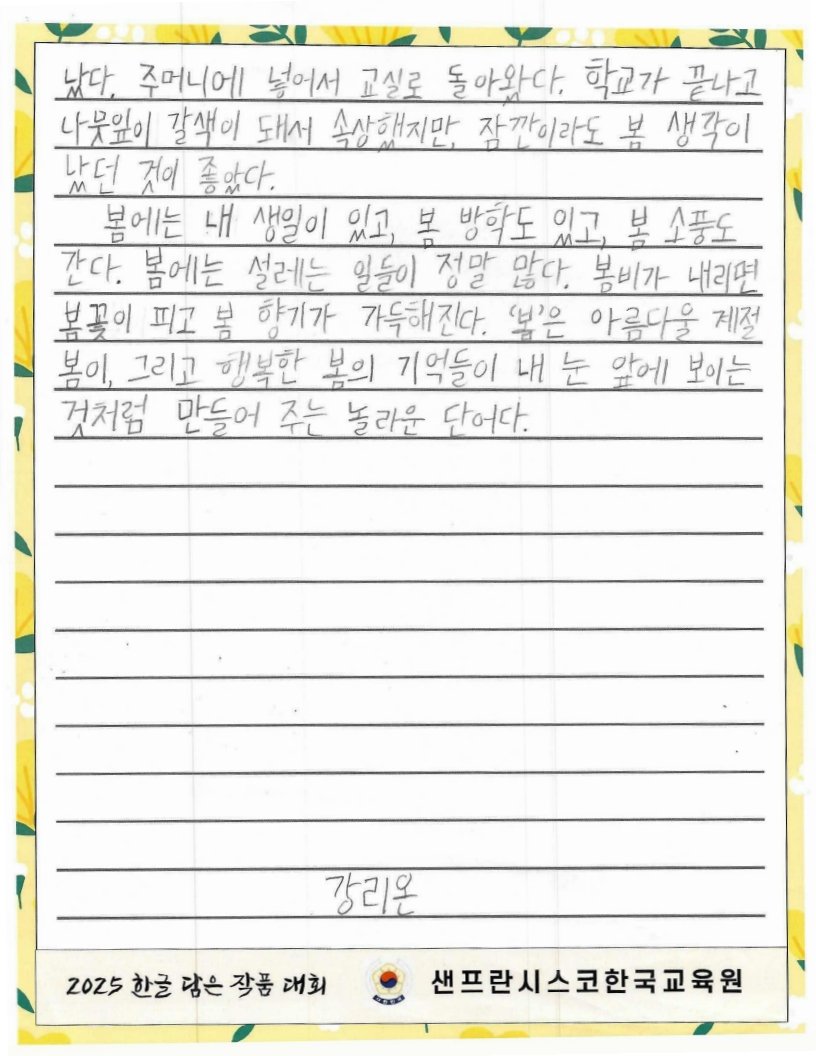 났다. 주머니에 넣어서 교실로 돌아왔다. 학교가 끝나고
나뭇잎이 갈색이 돼서 속상했지만, 잠깐이라도 봄 생각이
났던 것이 좋았다.
봄에는 내 생일이 있고, 봄 방학도 있고, 봄 소풍도
간다. 봄에는 설레는 일들이 정말 많다. 봄비가 내리면
봄꽃이 피고 봄 향기가 가득해진다. '봄'은 아름다울 계절
봄이, 그리고 행복한 봄의 기억들이 내 눈 앞에 보이는
것처럼 만들어 주는 놀라운 단어다.
강리온
2025 한글 담은 작품 대회
샌프란시스코한국교육원